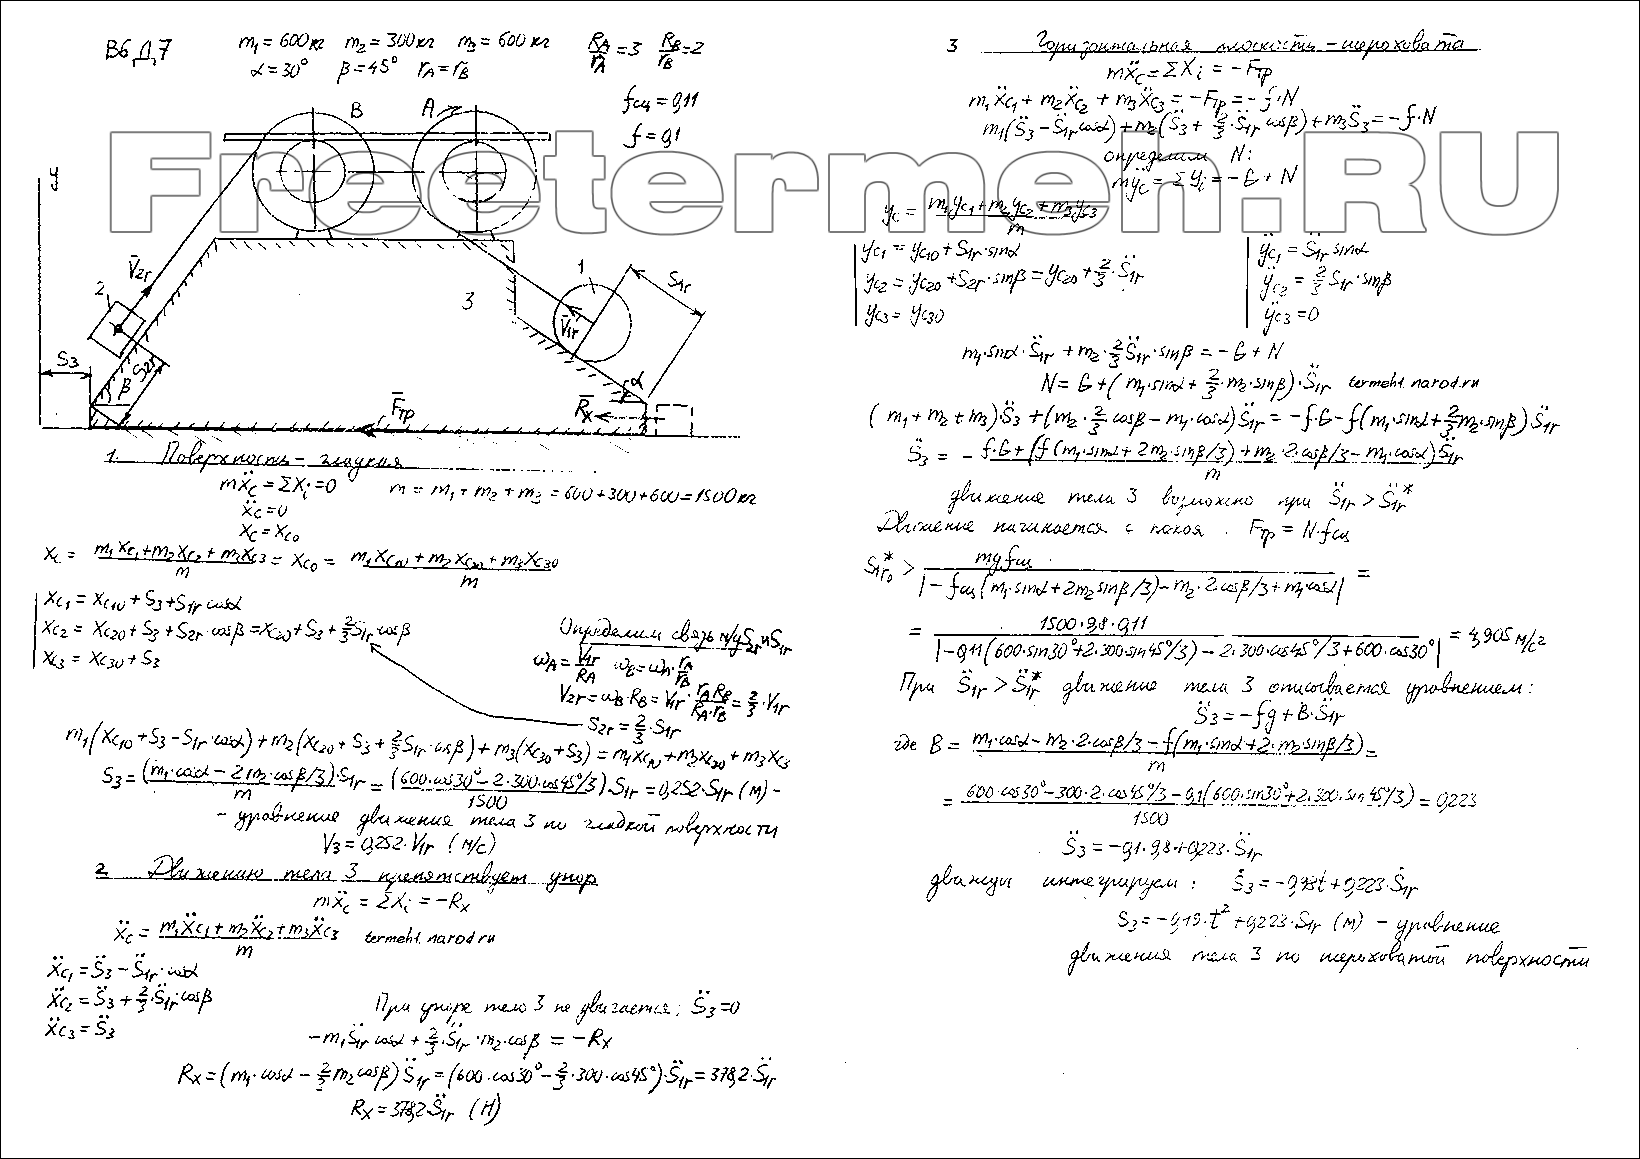 В6 Д7
m₁ = 600 кг m₂ = 300 кг m₃ = 600 кг R_A/r_A = 3 R_B/r_B = 2
α = 30° β = 45° r_A = r_B
f_сц = 0,11
f = 0,1
Freetermeh.RU
B A
y
V̄₂r
2
3
1
S₁r
V̄₁r
S₃
S₂r
β
α
F̄тр
R̄x
1. Поверхность – гладкая
mẍ_c = ΣXᵢ = 0 m = m₁ + m₂ + m₃ = 600 + 300 + 600 = 1500 кг
ẍ_c = 0
x_c = x_c₀
x_c = (m₁x_c₁ + m₂x_c₂ + m₃x_c₃)/m = x_c₀ = (m₁x_c₁₀ + m₂x_c₂₀ + m₃x_c₃₀)/m
x_c₁ = x_c₁₀ + S₃ + S₁r cosα
x_c₂ = x_c₂₀ + S₃ + S₂r·cosβ = x_c₂₀ + S₃ + 2/3 S₁r cosβ
x_c₃ = x_c₃₀ + S₃
Определим связь м/у S₂r и S₁r
ω_A = V₁r/R_A ω_B = ω_A·r_A/r_B
V₂r = ω_B·R_B = V₁r·(r_A R_B)/(R_A·r_B) = 2/3·V₁r
S₂r = 2/3·S₁r
m₁(x_c₁₀ + S₃ − S₁r·cosα) + m₂(x_c₂₀ + S₃ + 2/3 S₁r·cosβ) + m₃(x_c₃₀ + S₃) = m₁x_c₁₀ + m₂x_c₂₀ + m₃x_c₃
S₃ = (m₁·cosα − 2m₂·cosβ/3)/m·S₁r = (600·cos30° − 2·300·cos45°/3)/1500·S₁r = 0,252·S₁r (м) –
– уравнение движения тела 3 по гладкой поверхности
V₃ = 0,252·V₁r (м/с)
2 Движению тела 3 препятствует упор
mẍ_c = ΣXᵢ = −Rx
ẍ_c = (m₁ẍ_c₁ + m₂ẍ_c₂ + m₃ẍ_c₃)/m termeh1.narod.ru
ẍ_c₁ = S̈₃ − S̈₁r·cosα
ẍ_c₂ = S̈₃ + 2/3·S̈₁r·cosβ
ẍ_c₃ = S̈₃
При упоре тело 3 не двигается; S̈₃ = 0
−m₁S̈₁r cosα + 2/3·S̈₁r·m₂·cosβ = −Rx
Rx = (m₁·cosα − 2/3 m₂cosβ)S̈₁r = (600·cos30° − 2/3·300·cos45°)·S̈₁r = 378,2·S̈₁r
Rx = 378,2·S̈₁r (Н)
3 Горизонтальная плоскость – шероховата
mẍ_c = ΣXᵢ = −Fтр
m₁ẍ_c₁ + m₂ẍ_c₂ + m₃ẍ_c₃ = −Fтр = −f·N
m₁(S̈₃ − S̈₁r cosα) + m₂(S̈₃ + 2/3·S̈₁r cosβ) + m₃S̈₃ = −f·N
определим N:
mÿ_c = ΣYᵢ = −G + N
y_c = (m₁y_c₁ + m₂y_c₂ + m₃y_c₃)/m
y_c₁ = y_c₁₀ + S₁r·sinα ÿ_c₁ = S̈₁r sinα
y_c₂ = y_c₂₀ + S₂r·sinβ = y_c₂₀ + 2/3·S̈₁r ÿ_c₂ = 2/3 S₁r·sinβ
y_c₃ = y_c₃₀ ÿ_c₃ = 0
m₁·sinα·S̈₁r + m₂·2/3 S̈₁r·sinβ = −G + N
N = G + (m₁·sinα + 2/3·m₂·sinβ)·S̈₁r termeh1.narod.ru
(m₁ + m₂ + m₃)S̈₃ + (m₂·2/3 cosβ − m₁·cosα)S̈₁r = −f·G − f(m₁·sinα + 2/3 m₂·sinβ)S̈₁r
S̈₃ = −(f·G + (f(m₁·sinα + 2m₂·sinβ/3) + m₂·2·cosβ/3 − m₁cosα)S̈₁r)/m
движение тела 3 возможно при S̈₁r > S̈₁r*
Движение начинается с покоя. Fтр = N·f_сц
S₁r₀* > mgf_сц/|−f_сц(m₁sinα + 2m₂sinβ/3) − m₂·2cosβ/3 + m₁cosα| =
= 1500·9,8·0,11/|−0,11(600·sin30° + 2·300·sin45°/3) − 2·300·cos45°/3 + 600·cos30°| = 4,905 м/с²
При S̈₁r > S̈₁r* движение тела 3 описывается уравнением:
S̈₃ = −fg + B·S̈₁r
где B = (m₁·cosα − m₂·2·cosβ/3 − f(m₁·sinα + 2·m₂sinβ/3))/m =
= (600·cos30° − 300·2·cos45°/3 − 0,1(600·sin30° + 2·300·sin45°/3))/1500 = 0,223
S̈₃ = −0,1·9,8 + 0,223·S̈₁r
дважды интегрируем: Ṡ₃ = −0,98t + 0,223·Ṡ₁r
S₃ = −0,49·t² + 0,223·S₁r (м) – уравнение
движения тела 3 по шероховатой поверхности